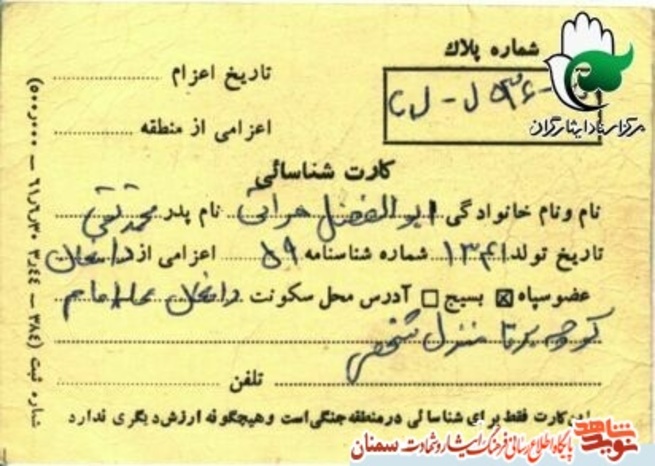 شماره پلاک
مرکز اسناد ایثارگران
تاریخ اعزام
اعزامی از منطقه
کارت شناسائی
نام و نام خانوادگی ابوالفضل هراتی نام پدر محمدتقی
تاریخ تولد ۱۳۴۱ شماره شناسنامه ۵۹ اعزامی از دامغان
عضو سپاه ☒ بسیج ☐ آدرس محل سکونت دامغان امام
کوچه منزل شخصی
تلفن
کارت فقط برای شناسائی در منطقه جنگی است و هیچگونه ارزش دیگری ندارد
نوید شاهد پایگاه اطلاع رسانی فرهنگ ایثار و شهادت سمنان
شماره ثبت (۳۸۴ — ۳۰۴۴ ۶۱٫۶٫۳۰ — ۵۰۰٫۰۰۰)